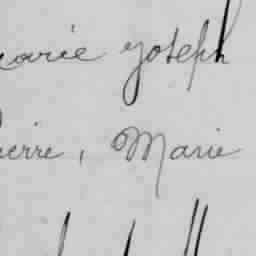 marie Joseph
Pierre, Marie